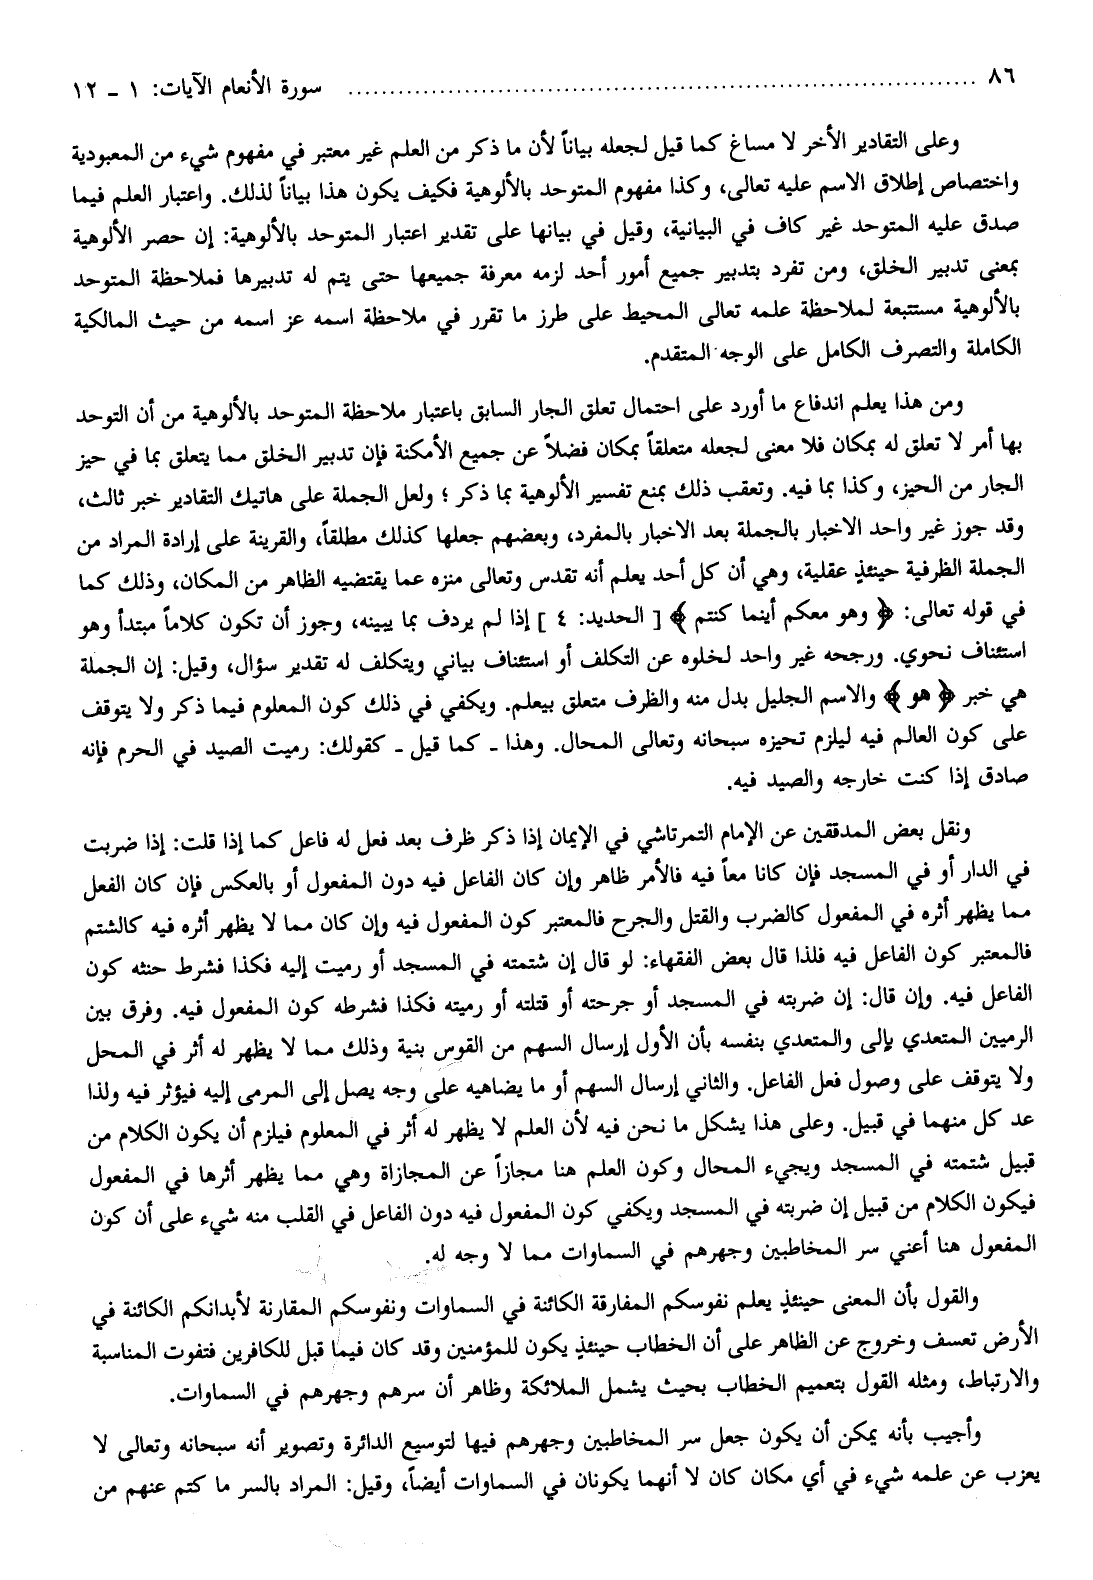 ٨٦ ........................................................................ سورة الأنعام الآيات: ١ - ١٢
وعلى التقادير الأخر لا مساغ كما قيل لجعله بياناً لأن ما ذكر من العلم غير معتبر في مفهوم شيء من المعبودية
واختصاص إطلاق الاسم عليه تعالى، وكذا مفهوم المتوحد بالألوهية فكيف يكون هذا بياناً لذلك. واعتبار العلم فيما
صدق عليه المتوحد غير كاف في البيانية، وقيل في بيانها على تقدير اعتبار المتوحد بالألوهية: إن حصر الألوهية
بمعنى تدبير الخلق، ومن تفرد بتدبير جميع أمور أحد لزمه معرفة جميعها حتى يتم له تدبيرها فملاحظة المتوحد
بالألوهية مستتبعة لملاحظة علمه تعالى المحيط على طرز ما تقرر في ملاحظة اسمه عز اسمه من حيث المالكية
الكاملة والتصرف الكامل على الوجه المتقدم.
ومن هذا يعلم اندفاع ما أورد على احتمال تعلق الجار السابق باعتبار ملاحظة المتوحد بالألوهية من أن التوحد
بها أمر لا تعلق له بمكان فلا معنى لجعله متعلقاً بمكان فضلاً عن جميع الأمكنة فإن تدبير الخلق مما يتعلق بما في حيز
الجار من الحيز، وكذا بما فيه. وتعقب ذلك بمنع تفسير الألوهية بما ذكر ؛ ولعل الجملة على هاتيك التقادير خبر ثالث،
وقد جوز غير واحد الاخبار بالجملة بعد الاخبار بالمفرد، وبعضهم جعلها كذلك مطلقاً، والقرينة على إرادة المراد من
الجملة الظرفية حينئذٍ عقلية، وهي أن كل أحد يعلم أنه تقدس وتعالى منزه عما يقتضيه الظاهر من المكان، وذلك كما
في قوله تعالى: ﴿ وهو معكم أينما كنتم ﴾ [ الحديد: ٤ ] إذا لم يردف بما يبينه، وجوز أن تكون كلاماً مبتدأ وهو
استئناف نحوي. ورجحه غير واحد لخلوه عن التكلف أو استئناف بياني ويتكلف له تقدير سؤال، وقيل: إن الجملة
هي خبر ﴿ هو ﴾ والاسم الجليل بدل منه والظرف متعلق بيعلم. ويكفي في ذلك كون المعلوم فيما ذكر ولا يتوقف
على كون العالم فيه ليلزم تحيزه سبحانه وتعالى المحال. وهذا - كما قيل - كقولك: رميت الصيد في الحرم فإنه
صادق إذا كنت خارجه والصيد فيه.
ونقل بعض المدققين عن الإمام التمرتاشي في الإيمان إذا ذكر ظرف بعد فعل له فاعل كما إذا قلت: إذا ضربت
في الدار أو في المسجد فإن كانا معاً فيه فالأمر ظاهر وإن كان الفاعل فيه دون المفعول أو بالعكس فإن كان الفعل
مما يظهر أثره في المفعول كالضرب والقتل والجرح فالمعتبر كون المفعول فيه وإن كان مما لا يظهر أثره فيه كالشتم
فالمعتبر كون الفاعل فيه فلذا قال بعض الفقهاء: لو قال إن شتمته في المسجد أو رميت إليه فكذا فشرط حنثه كون
الفاعل فيه. وإن قال: إن ضربته في المسجد أو جرحته أو قتلته أو رميته فكذا فشرطه كون المفعول فيه. وفرق بين
الرميين المتعدي بإلى والمتعدي بنفسه بأن الأول إرسال السهم من القوس بنية وذلك مما لا يظهر له أثر في المحل
ولا يتوقف على وصول فعل الفاعل. والثاني إرسال السهم أو ما يضاهيه على وجه يصل إلى المرمى إليه فيؤثر فيه ولذا
عد كل منهما في قبيل. وعلى هذا يشكل ما نحن فيه لأن العلم لا يظهر له أثر في المعلوم فيلزم أن يكون الكلام من
قبيل شتمته في المسجد ويجيء المحال وكون العلم هنا مجازاً عن المجازاة وهي مما يظهر أثرها في المفعول
فيكون الكلام من قبيل إن ضربته في المسجد ويكفي كون المفعول فيه دون الفاعل في القلب منه شيء على أن كون
المفعول هنا أعني سر المخاطبين وجهرهم في السماوات مما لا وجه له.
والقول بأن المعنى حينئذٍ يعلم نفوسكم المفارقة الكائنة في السماوات ونفوسكم المقارنة لأبدانكم الكائنة في
الأرض تعسف وخروج عن الظاهر على أن الخطاب حينئذٍ يكون للمؤمنين وقد كان فيما قبل للكافرين فتفوت المناسبة
والارتباط، ومثله القول بتعميم الخطاب بحيث يشمل الملائكة وظاهر أن سرهم وجهرهم في السماوات.
وأجيب بأنه يمكن أن يكون جعل سر المخاطبين وجهرهم فيها لتوسيع الدائرة وتصوير أنه سبحانه وتعالى لا
يعزب عن علمه شيء في أي مكان كان لا أنهما يكونان في السماوات أيضاً، وقيل: المراد بالسر ما كتم عنهم من